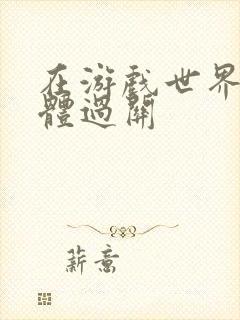 在游戏世界
體過關
薪意